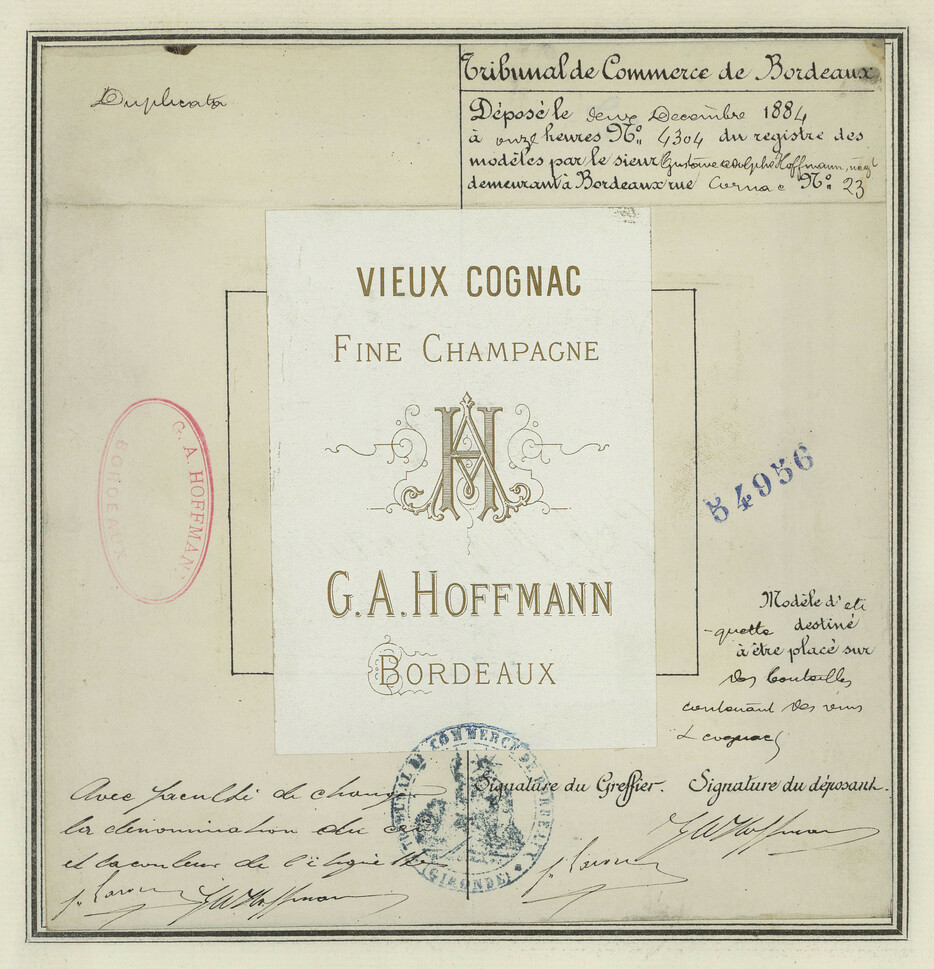 Duplicata
Tribunal de Commerce de Bordeaux
Déposé le deux Decembre 1884
à onze heures No. 4304 du registre des
modèles par le sieur Gustave Adolphe Hoffmann, negt
demeurant à Bordeaux rue Cornac No. 23
VIEUX COGNAC
FINE CHAMPAGNE
G. A. HOFFMANN
BORDEAUX
G. A. HOFFMANN
BORDEAUX
54956
Modèle d'eti
-quette destiné
à être placé sur
des bouteilles
contenant des vins
& cognacs
TRIBUNAL DE COMMERCE DE BORDEAUX
(GIRONDE)
Signature du Greffier. Signature du déposant.
Avec faculté de changer
la dénomination du cru
et la couleur de l'étiquette
GAHoffmann
GAHoffmann